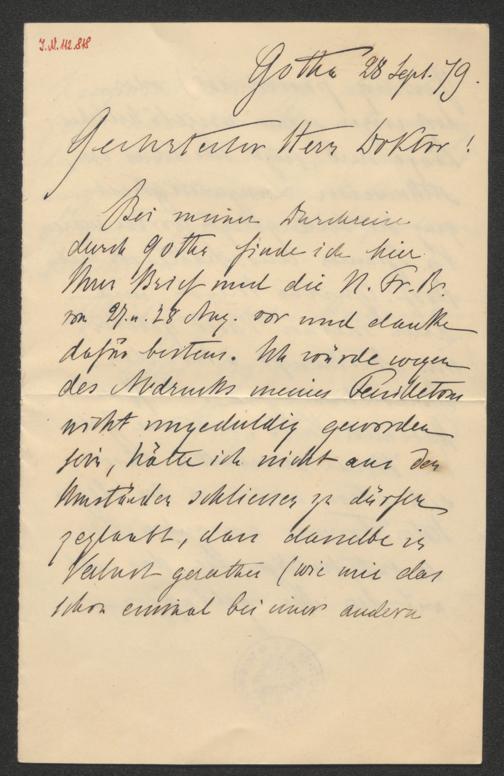 J.N. 112.818
Gotha 28 Sept. 79.
Geehrtester Herr Doktor!
Bei meiner Durchreise
durch Gotha finde ich hier
Ihren Brief und die N. Fr. Pr.
von 27. u. 28 Aug. vor und danke
dafür bestens. Ich würde wegen
des Abdrucks meines Feuilletons
nicht ungeduldig geworden
sein, hätte ich nicht aus den
Umständen schliessen zu dürfen
geglaubt, dass dasselbe in
Verlust gerathen (wie mir das
schon einmal bei einer andern